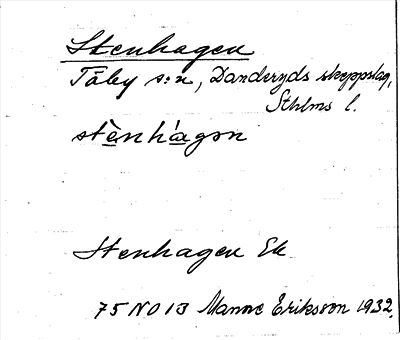 Stenhagen
Täby s:n, Danderyds skeppslag,
Sthlms l.
stènhágən
Stenhagen Ek
75 NO 13 Manne Eriksson 1932.